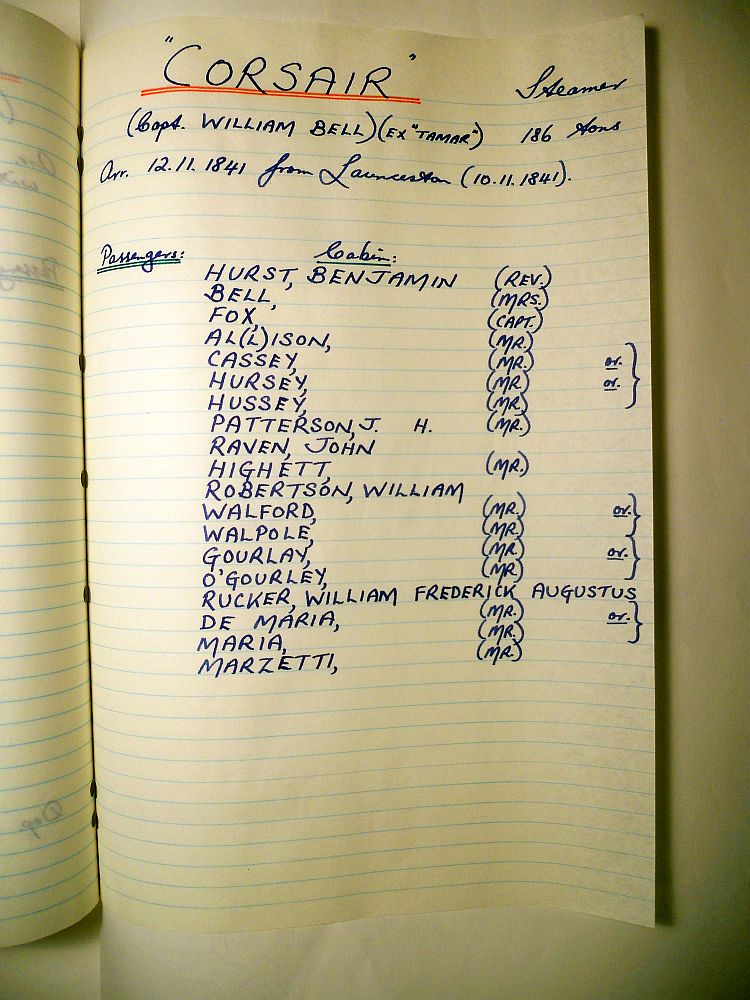 "CORSAIR" Steamer
(Capt. WILLIAM BELL) (EX "TAMAR") 186 tons
Arr. 12.11.1841 from Launceston (10.11.1841).
Passengers: Cabin:
HURST, BENJAMIN (REV.)
BELL, (MRS.)
FOX, (CAPT.)
AL(L)ISON, (MR.)
CASSEY, (MR.) or. }
HURSEY, (MR.) or.
HUSSEY, (MR.)
PATTERSON, J. H. (MR.)
RAVEN, JOHN
HIGHETT, (MR.)
ROBERTSON, WILLIAM
WALFORD, (MR.) or. }
WALPOLE, (MR.)
GOURLAY, (MR.) or. }
O'GOURLEY, (MR.)
RUCKER, WILLIAM FREDERICK AUGUSTUS
DE MARIA, (MR.) or. }
MARIA, (MR.)
MARZETTI, (MR.)